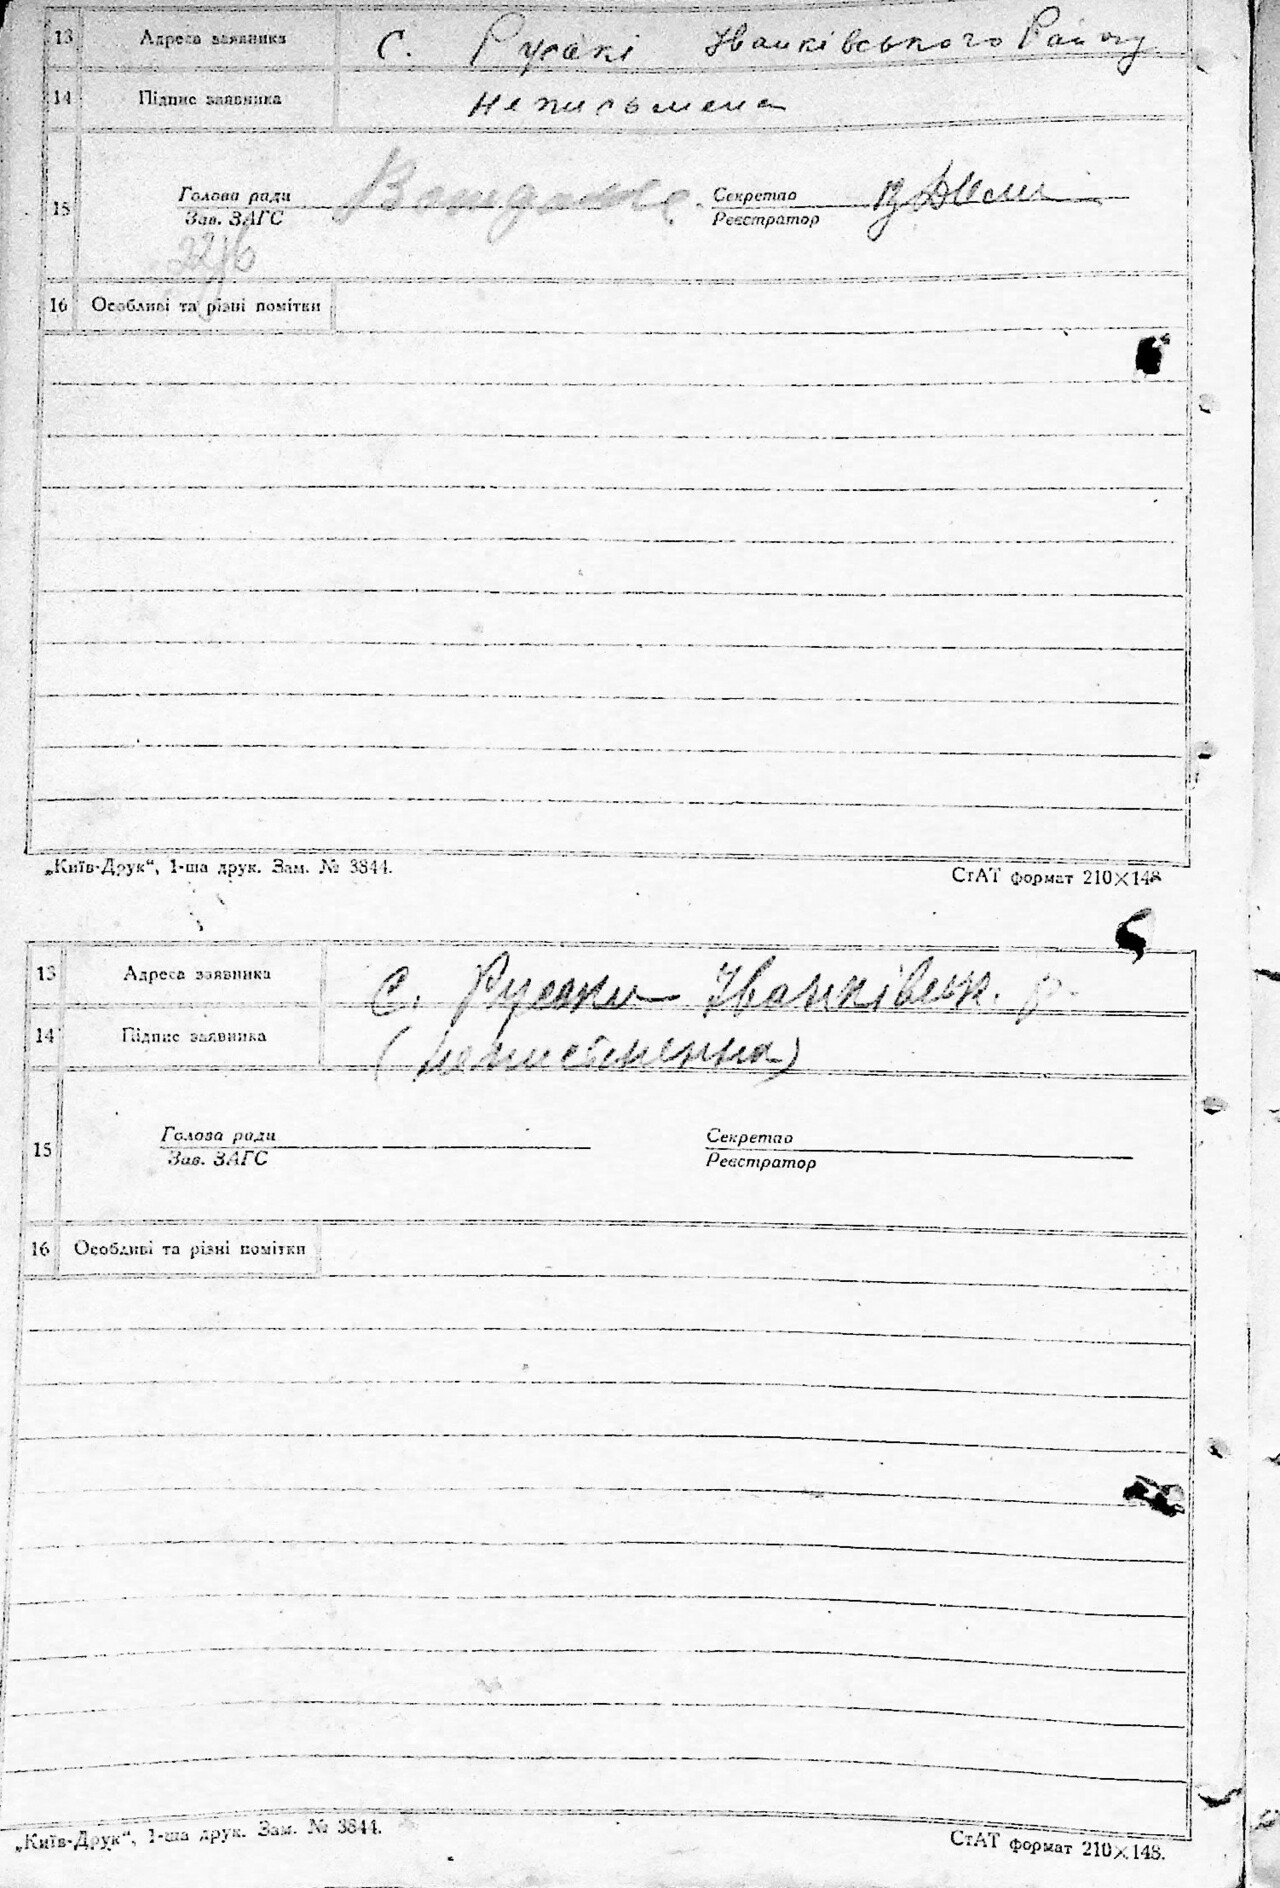 13 Адреса заявника с. Русакі Іванківського Району
14 Підпис заявника неписьмена
15 Голова ради Секретар
Зав. ЗАГС Реєстратор
22/6
16 Особливі та різні помітки
„Київ-Друк“, 1-ша друк. Зам. № 3844. СтАТ формат 210×148
13 Адреса заявника с. Русаки Іванківськ. р.
14 Підпис заявника (неписьменна)
15 Голова ради Секретар
Зав. ЗАГС Реєстратор
16 Особливі та різні помітки
„Київ-Друк“, 1-ша друк. Зам. № 3844. СтАТ формат 210×148.